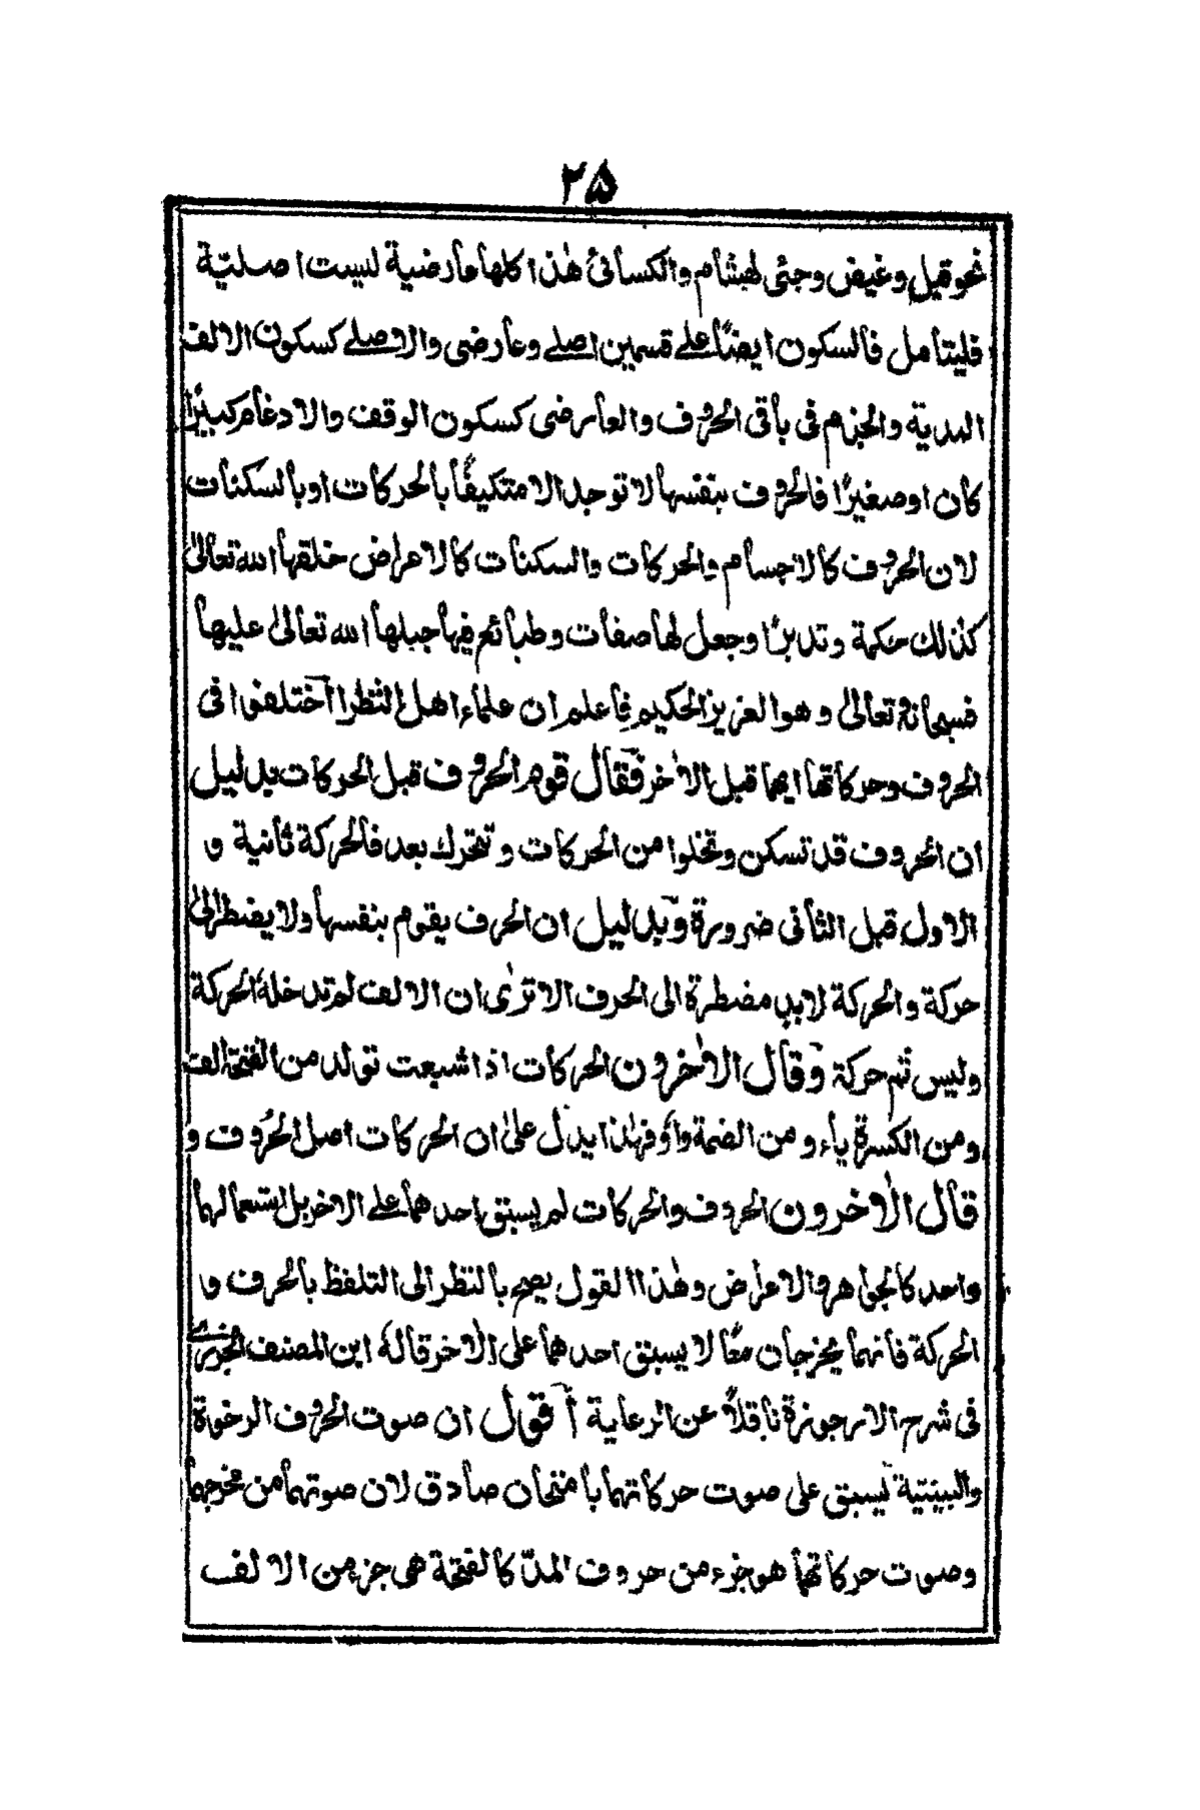 ۲۵
نحو قيل وغيض وجئى لهشام والكسائى هٰذا كلها عارضية ليست اصليّة
فليتأمل فالسكون ايضًا علے قسمين اصلے وعارضى والاصلے كسكون الالف
المدية والجزم فى باقى الحروف والعارضى كسكون الوقف والادغام كبيرًا
كان اوصغيرًا فالحروف بنفسها لا توجد الا متكيفًا بالحركات اوبالسكنات
لان الحروف كالاجسام والحركات والسكنات كالاعراض خلقها الله تعالىٰ
كذلك حكمة وتدبرًا وجعل لها صفات وطبائع فيها جبلها الله تعالىٰ عليها
فسبحانه وتعالىٰ وهو العزيز الحكيم فاعلم ان علماء اهل النظر اختلفوا فى
الحروف وحركاتها ايهما قبل الاٰخر فقال قوم الحروف قبل الحركات بدليل
ان الحروف قد تسكن وتخلوا من الحركات وتتحرك بعد فالحركة ثانية و
الاول قبل الثانى ضرورة وبدليل ان الحرف يقوم بنفسها ولا يضطر الىٰ
حركة والحركة لابد مضطرة الى الحرف الا ترٰى ان الالف لم تدخله الحركة
وليس ثم حركة وقال الاٰخرون الحركات اذا شبعت تولد من الفتحة الف
ومن الكسرة ياء ومن الضمة واو فهٰذا يدل علىٰ ان الحركات اصل الحروف و
قال الاٰخرون الحروف والحركات لم يسبق احدهما علے الاٰخر بل استعمالهما
واحد كالجواهر والاعراض وهٰذا القول يصح بالنظر الى التلفظ بالحرف و
الحركة فانهما يخرجان معًا لا يسبق احدهما على الاٰخر قاله ابن المصنف الجزرے
فى شرح الارجوزة ناقلاً عن الرعاية اقول ان صوت الحروف الرخوة
والبينتية يسبق على صوت حركاتهما بامتحان صادق لان صوتهما من مخرجهما
وصوت حركاتهما هو جزء من حروف المدّ كالفتحة هى جزء من الالف